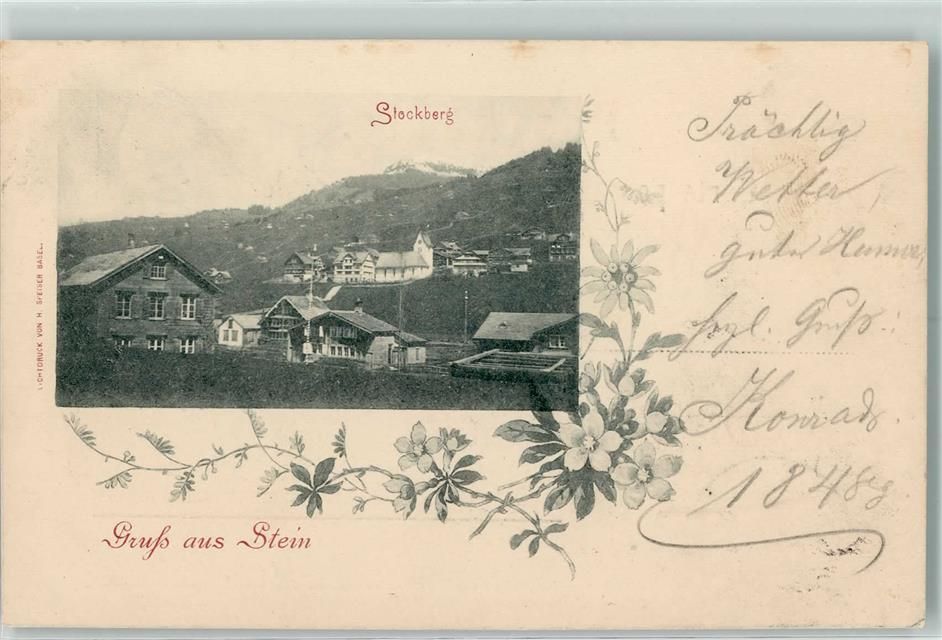 Stockberg
Prächtig
Wetter,
guter Humor,
hzl. Gruß!
Konrad.
LICHTDRUCK VON H. SPEISER BASEL.
Gruß aus Stein